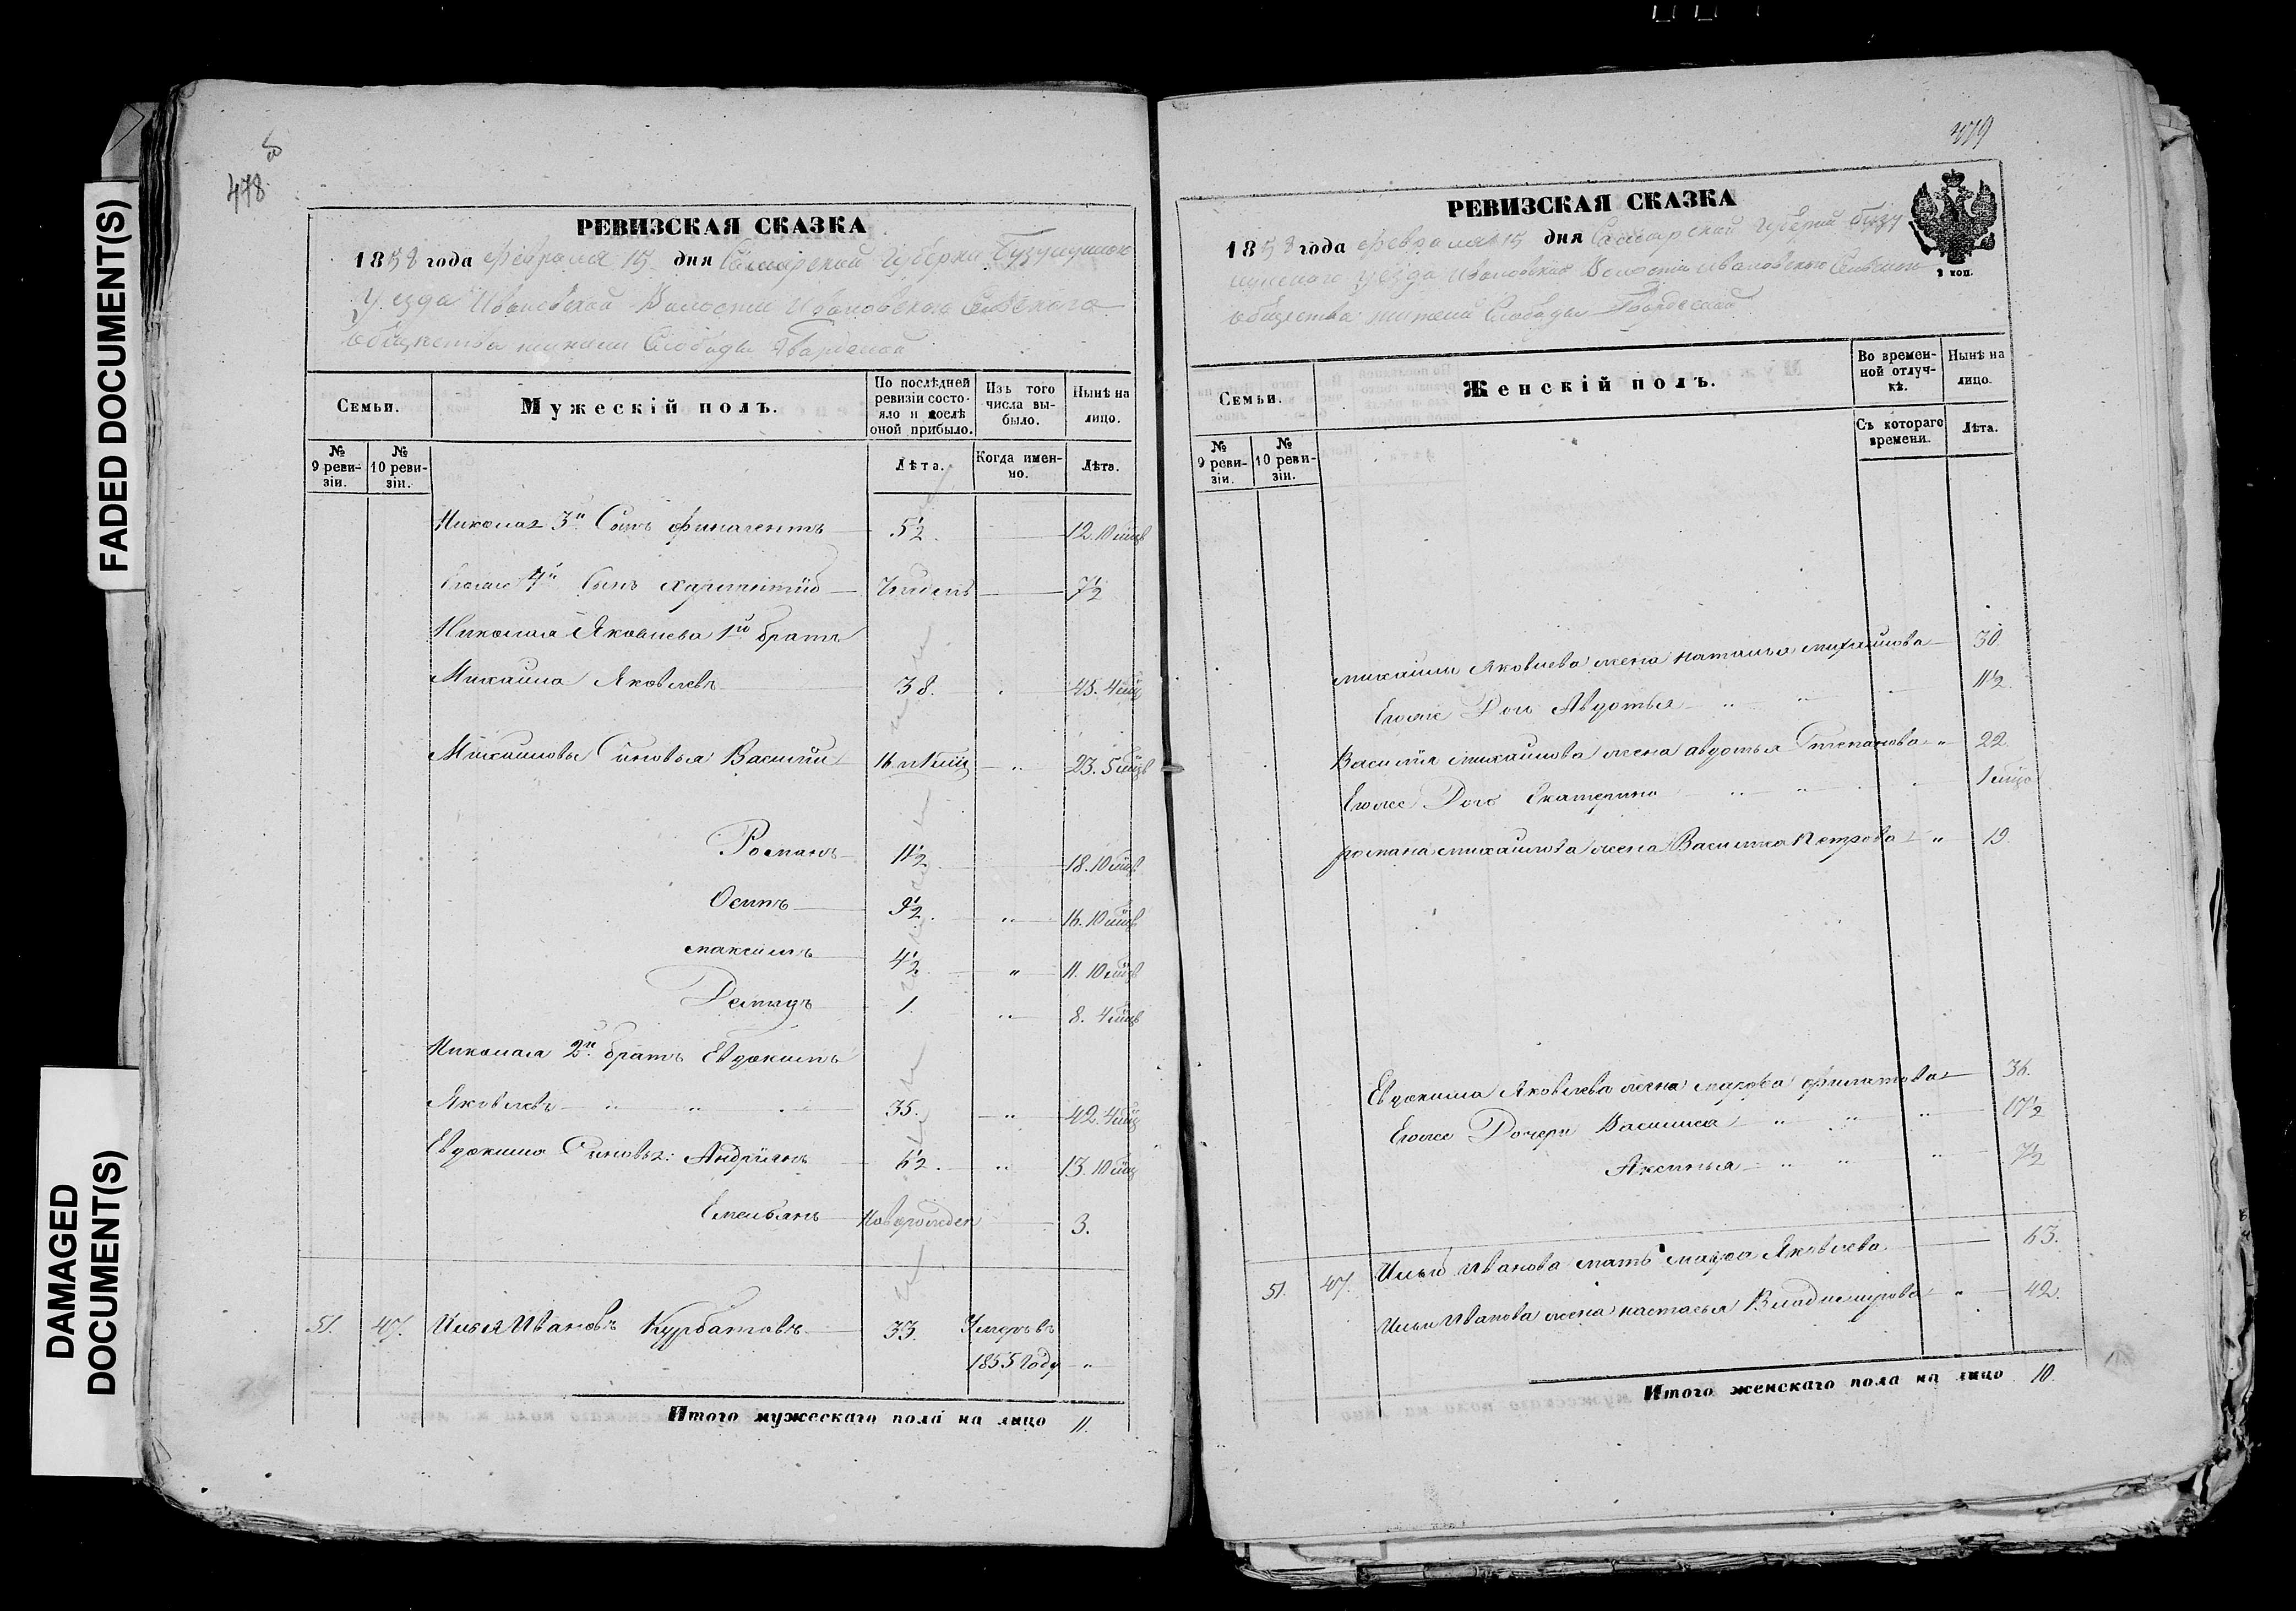 FADED DOCUMENT(S)
DAMAGED
DOCUMENT(S)
478
РЕВИЗСКАЯ СКАЗКА
1858 года февраля 15 дня Самарской Губерни Бузулуцкого
Уезда Ивановской Волости Ивановского Сельского
общества жители Слободы Гвардеской
Семьи.
Мужескій полъ.
По послѣдней
ревизіи состо-
яло и послѣ
оной прибыло.
Изъ того
числа вы-
было.
Нынѣ на
лицо.
№
9 реви-
зіи.
№
10 реви-
зіи.
Лѣта.
Когда имен-
но.
Лѣта.
Николая 3й Сынъ 5½ 12. 10 мцв
Егоже 4й Сынъ 7½
Николая Яковлева 1й братъ
Михаила Яковлевъ 38. 45. 4 мц
Михаиловы Синовья Василий 16 23. 5 мцв
Романъ 11½ 18. 10 мцв
Осипъ 9½ 16. 10 мцв
максимъ 4½ 11. 10 мцв
Демидъ 1. 8. 4 мцв
Николая 2й братъ Евдокимъ
Яковлевъ 35. 42. 4 мц
Евдокима Синовья: Андриянъ 6½ 13. 10 мц
Емельянъ Новорожден 3.
51. 47. Илья Ивановъ Курбатовъ 33. Умеръ въ
1855 Году
Итого мужескаго пола на лицо 11.
479
РЕВИЗСКАЯ СКАЗКА
1858 года февраля 15 дня Самарской Губерни Бузу
луцкого уезда Ивановской Волости Ивановского Сельского
общества жители Слободы Гвардеской
2 коп.
Семьи.
Женскій полъ.
Во времен-
ной отлуч-
кѣ.
Нынѣ на
лицо.
№
9 реви-
зіи.
№
10 реви-
зіи.
Съ котораго
времени.
Лѣта.
михаилы Яковлева жена наталья михайлова 30
Егоже Доч Авдотья 11½
Василия михаилова жена авдотья Степанова 22.
Егоже Доч Екатерина 1 мцо
романа михаилова жена Василиса Петрова 19.
Евдокима Яковлева жена марфа филатова 36.
Егоже Дочери Василиса 17½
Аксинья 7½
51. 47. Ильи Иванова мать марфа Яковлева 63.
Ильи Иванова жена настасья Владимирова 42.
Итого женскаго пола на лицо 10.